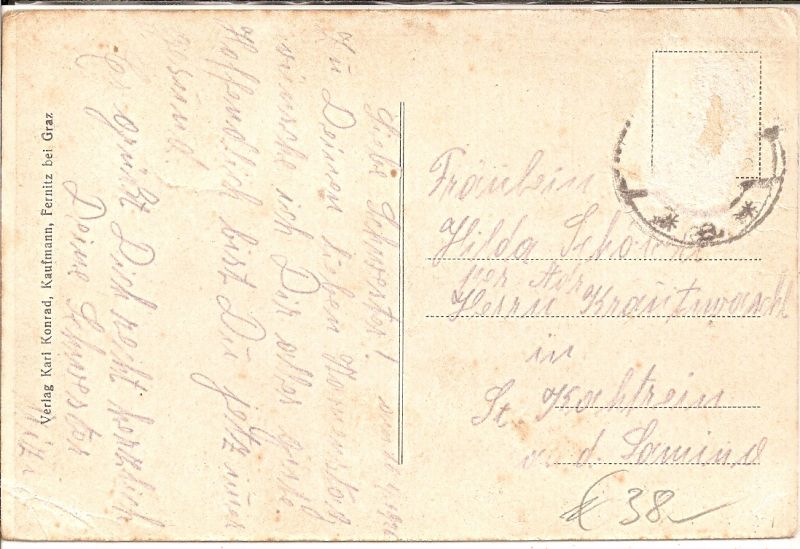 Liebe Schwester!
Zu Deinem lieben Namenstag
wünsche ich Dir alles Gute.
Hoffendlich bist Du jetz immer
gesund.
Es grüßt Dich recht herzlich
Deine Schwester
Mizi
Verlag Karl Konrad, Kaufmann, Fernitz bei Graz
Fräulein
Hilda
per Adr
Herrn Krautwaschl
in
St Kahtrein
a. d. Laming
€ 38